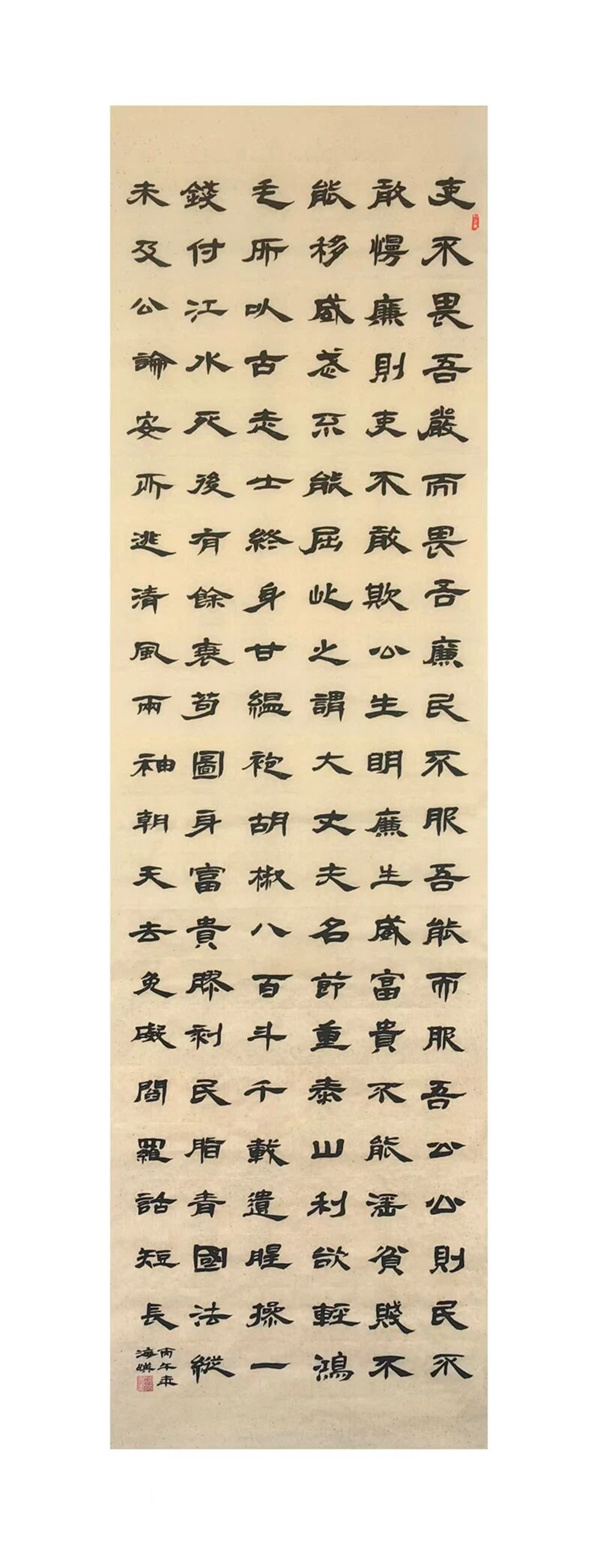 吏不畏吾嚴而畏吾廉民不服吾能而服吾公公則民不
敢慢廉則吏不敢欺公生明廉生威富貴不能淫貧賤不
能移威武不能屈此之謂大丈夫名節重泰山利欲輕鴻
毛所以古志士終身甘縕袍胡椒八百斗千載遺腥臊一
錢付江水死後有餘裒苟圖身富貴膠剝民脂膏國法縱
未及公論安所逃清風兩袖朝天去免礙閻羅話短長
丙午年
海